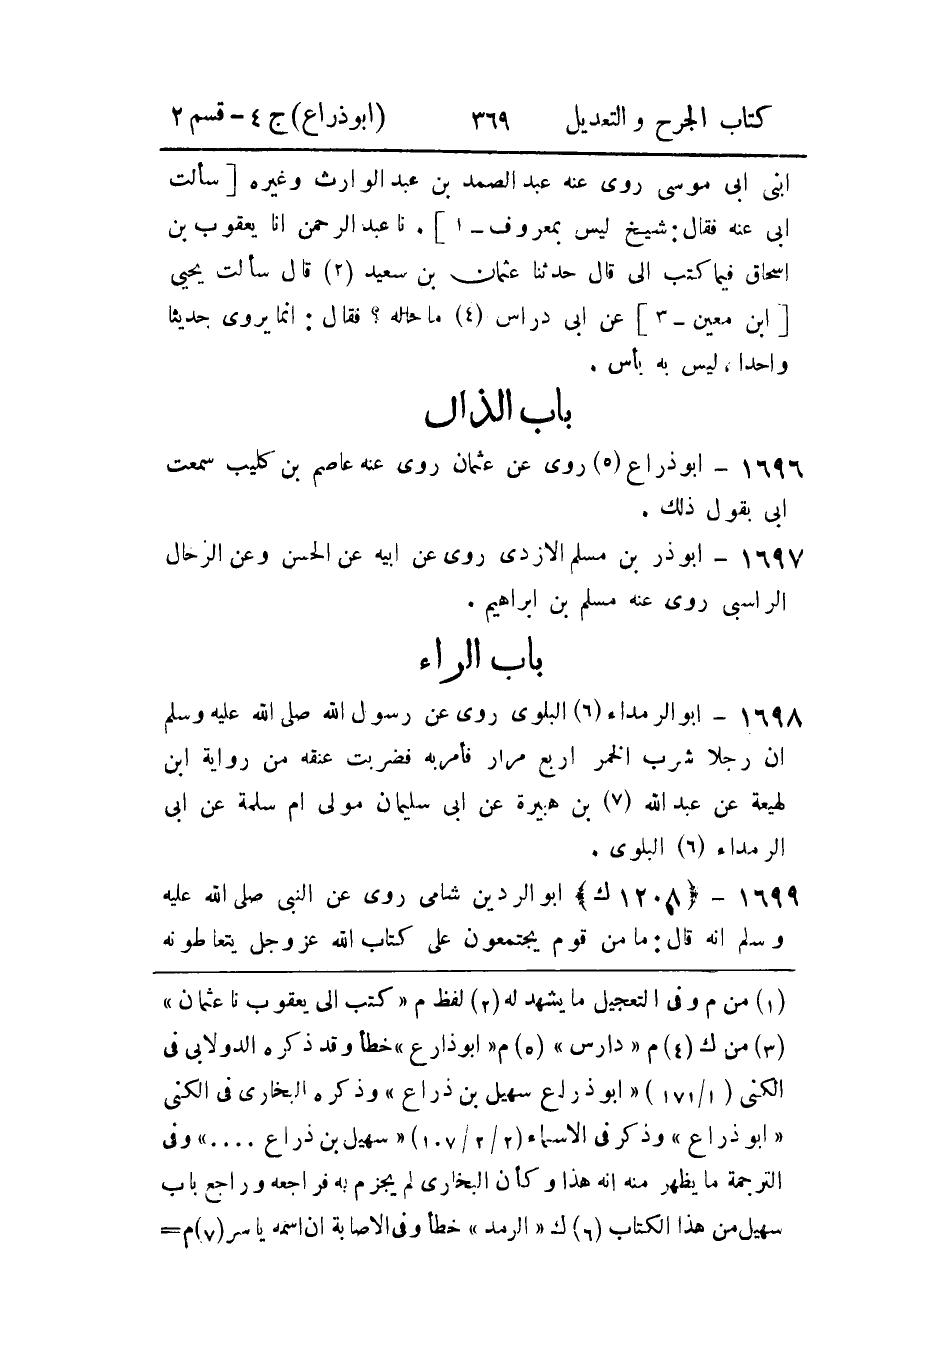 كتاب الجرح و التعديل ٣٦٩ (ابوذراع) ج ٤ - قسم ٢
ابى ابى موسى روى عنه عبد الصمد بن عبد الوارث وغيره [ سألت
ابى عنه فقال: شيخ ليس بمعروف - ١ ] . نا عبد الرحمن انا يعقوب بن
اسحاق فيما كتب الى قال حدثنا عثمان بن سعيد (٢) قال سألت يحيى
[ ابن معين - ٣ ] عن ابى دراس (٤) ما حاله ؟ فقال : انما يروى حديثا
واحدا ، ليس به بأس .
باب الذال
١٦٩٦ - ابو ذراع (٥) روى عن عثمان روى عنه عاصم بن كليب سمعت
ابى يقول ذلك .
١٦٩٧ - ابوذر بن مسلم الازدى روى عن ابيه عن الحسن وعن الرحال
الراسبى روى عنه مسلم بن ابراهيم .
باب الراء
١٦٩٨ - ابو الرمداء (٦) البلوى روى عن رسول الله صلى الله عليه وسلم
ان رجلا شرب الخمر اربع مرار فأمر به فضربت عنقه من رواية ابن
لهيعة عن عبد الله (٧) بن هبيرة عن ابى سليمان مولى ام سلمة عن ابى
الرمداء (٦) البلوى .
١٦٩٩ - ﴿١٢٠٨ ك﴾ ابو الردين شامى روى عن النبى صلى الله عليه
وسلم انه قال: ما من قوم يجتمعون على كتاب الله عز وجل يتعاطونه
(١) من م وفى التعجيل ما يشهد له (٢) لفظ م « كتب الى يعقوب نا عثمان »
(٣) من ك (٤) م « دارس » (٥) م« ابوذارع »خطأ وقد ذكره الدولابى فى
الكنى ( ١/ ١٧١ ) « ابو ذراع سهيل بن ذراع » وذكره البخارى فى الكنى
« ابو ذراع » وذكر فى الاسماء (٢ /٢ /١٠٧) « سهيل بن ذراع ....» وفى
الترجمة ما يظهر منه انه هذا وكأن البخارى لم يجزم به فراجعه وراجع باب
سهيل من هذا الكتاب (٦) ك « الرمد » خطأ وفى الاصابة ان اسمه ياسر (٧) م=